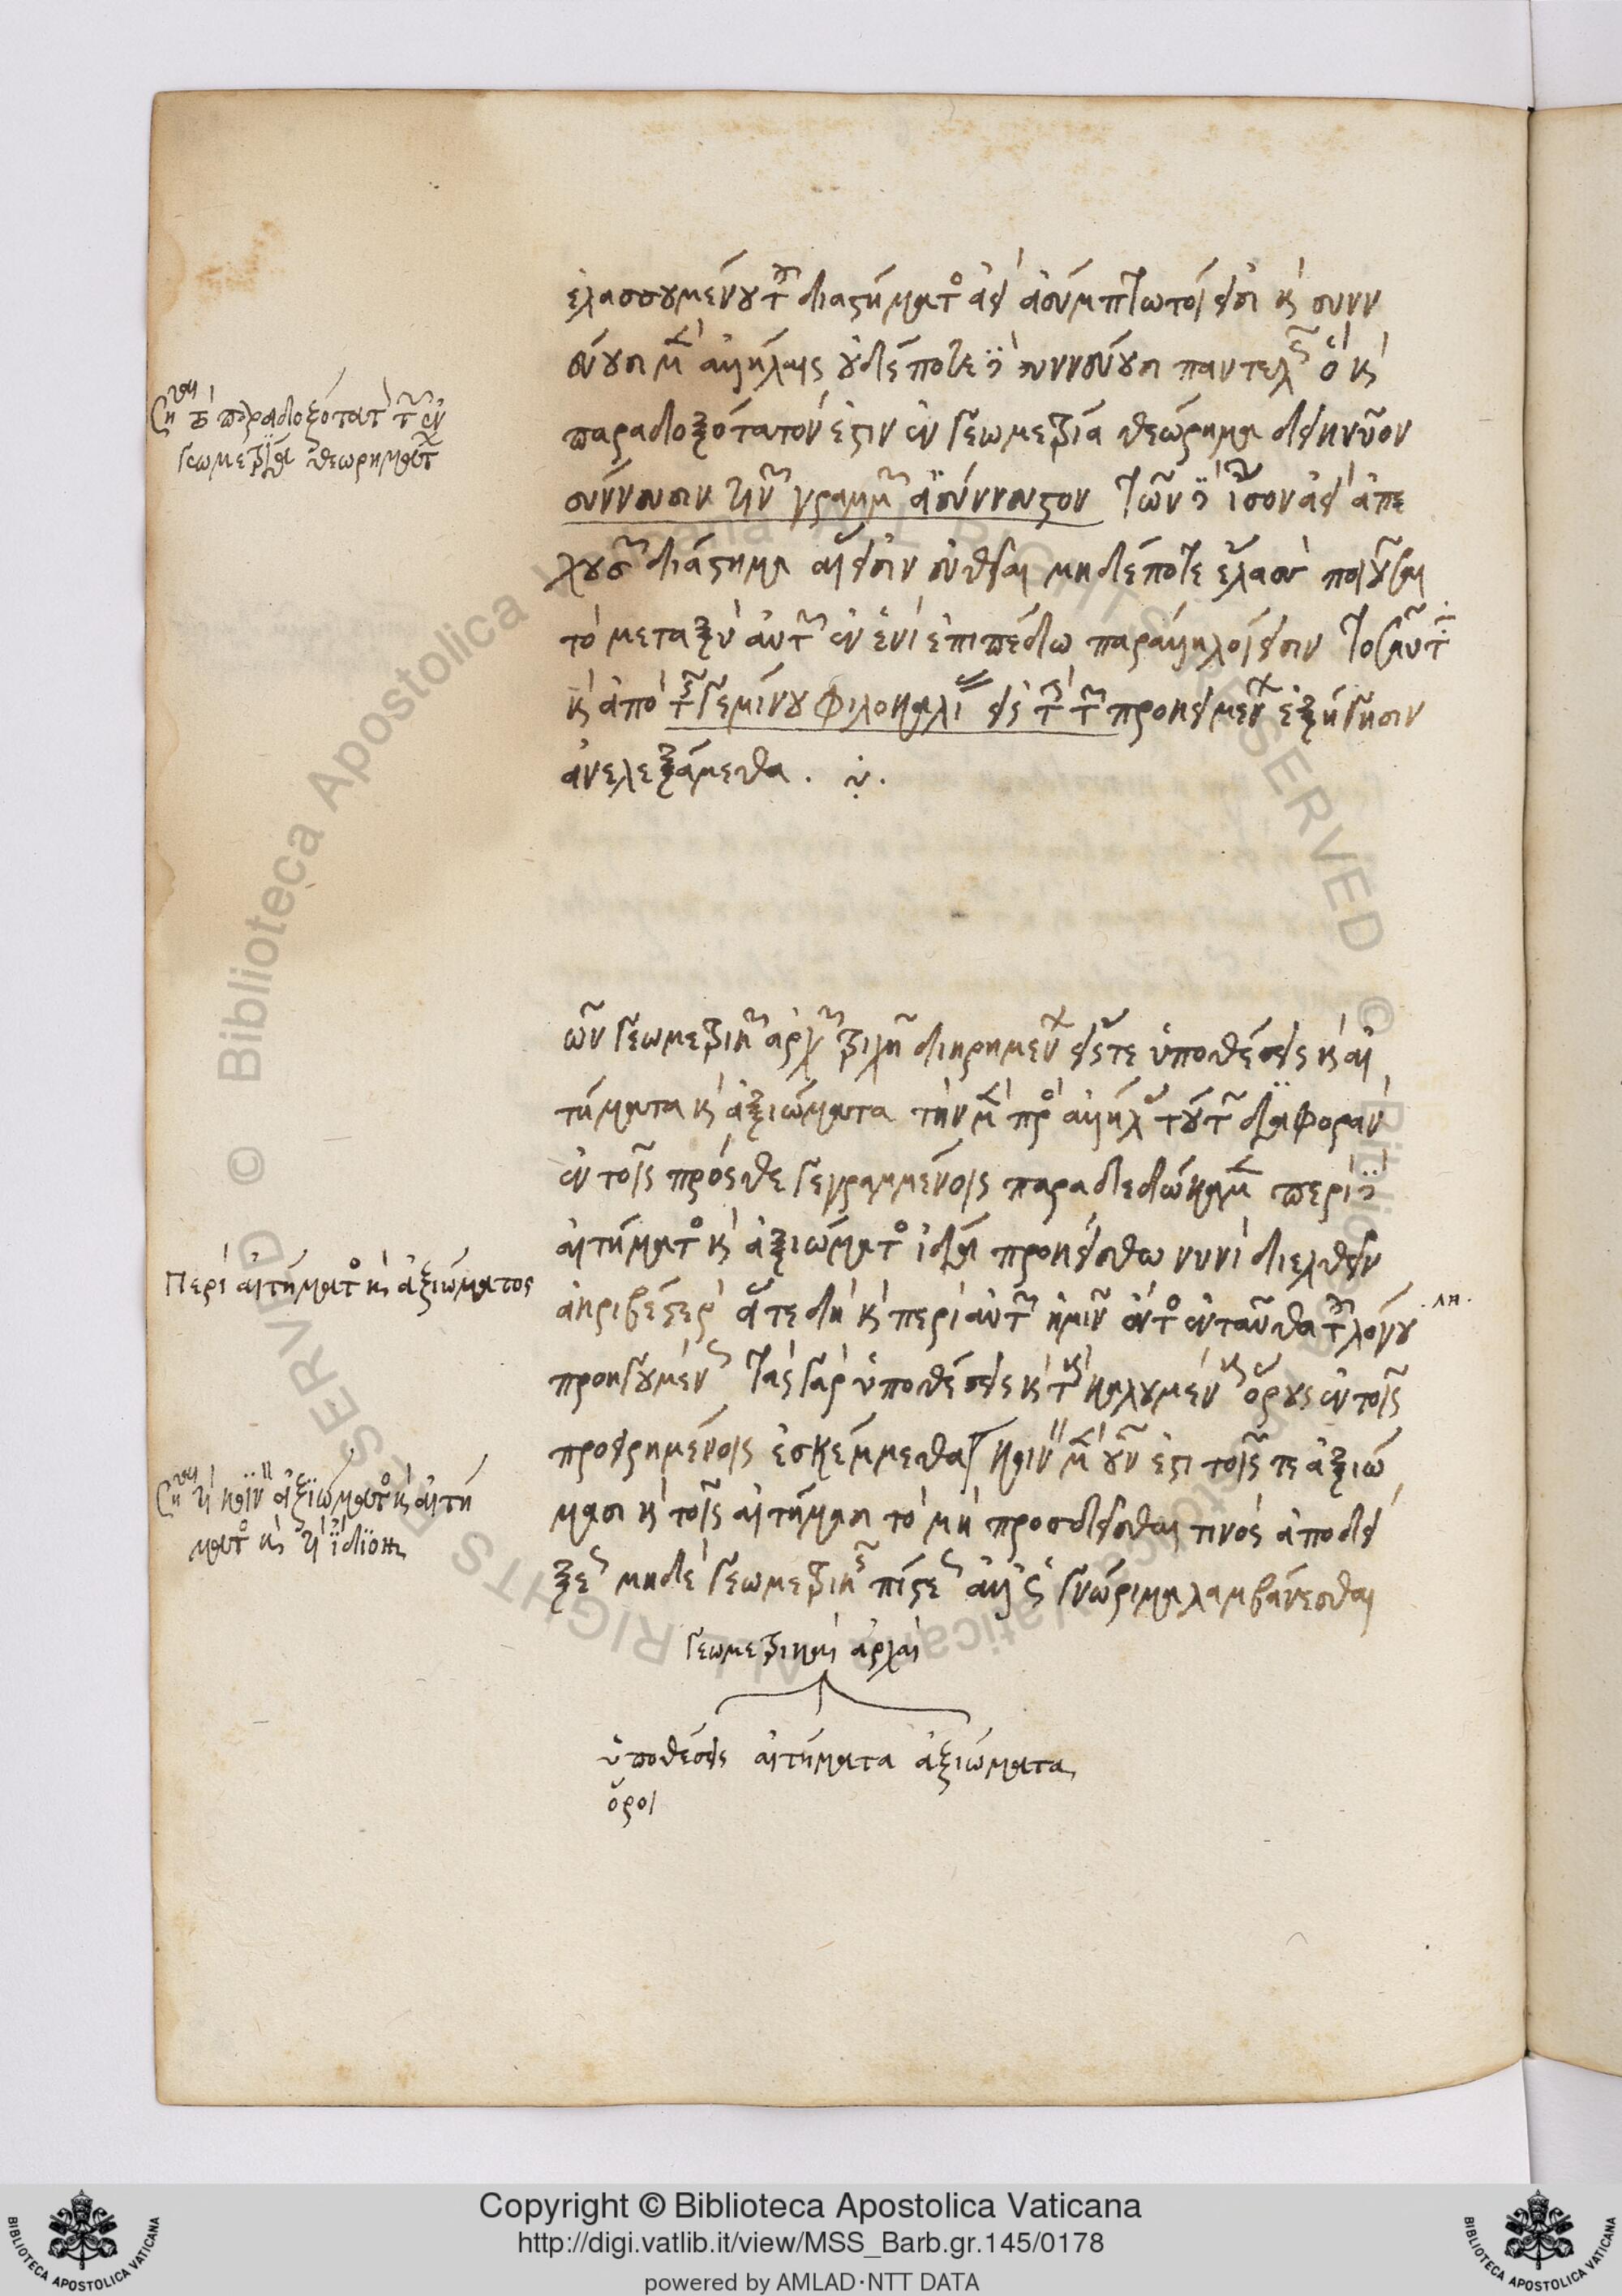 ἐλασσουμένου τοῦ διαστήματος ἀεὶ ἀσύμπτωτοί εἰσι καὶ συνν
εύουσι μὲν ἀλλήλαις οὐδέποτε δὲ συννεύουσι παντελῶς ὃ καὶ
παραδοξότατόν ἐστιν ἐν γεωμετρίᾳ θεώρημα δεικνῦον
σύννευσιν τινῶν γραμμῶν ἀσύννευστον τῶν δὲ ἴσον ἀεὶ ἀπε
χουσῶν διάστημα αἵ εἰσιν εὐθεῖαι μηδέποτε ἔλασσον ποιοῦσαι
τὸ μεταξὺ αὐτῶν ἐν ἑνὶ ἐπιπέδῳ παράλληλοί εἰσιν τοσαῦτα
καὶ ἀπὸ τῆς Γεμίνου φιλοκαλίας εἰς τὴν τῶν προκειμένων ἐξήγησιν
ἀνελεξάμεθα.
Ση τὸ παραδοξότατον τῶν ἐν
γεωμετρίᾳ θεωρημάτων
ῶν γεωμετρικῶν ἀρχῶν τριχῇ διῃρημένων εἴς τε ὑποθέσεις καὶ αἰ
τήματα καὶ ἀξιώματα τὴν μὲν πρὸς ἄλληλα τούτων διαφορὰν
ἐν τοῖς πρόσθε γεγραμμένοις παραδεδώκαμεν περὶ δὲ
αἰτήματος καὶ ἀξιώματος ἰδίᾳ προκείσθω νυνὶ διελθεῖν
ἀκριβέστερον ἅτε δὴ καὶ περὶ αὐτῶν ἡμῖν ὄντος ἐνταῦθα τοῦ λόγου
προηγουμένως τὰς γὰρ ὑποθέσεις καὶ τοὺς καλουμένους ὅρους ἐν τοῖς
προειρημένοις ἐσκέμμεθα κοινὸν μὲν οὖν ἐστι τοῖς τε ἀξιώ
μασι καὶ τοῖς αἰτήμασι τὸ μὴ προσδεῖσθαι τινὸς ἀποδεί
ξεως μηδὲ γεωμετρικῆς πίστεως ἀλλ' ὡς γνώριμα λαμβάνεσθαι
Περὶ αἰτήματος καὶ ἀξιώματος
.λη.
Ση τί κοινὸν ἀξιώματος καὶ αἰτή
ματος καὶ τί ἴδιον
γεωμετρικαὶ ἀρχαὶ
ὑποθέσεις αἰτήματα ἀξιώματα
ὅροι
Copyright © Biblioteca Apostolica Vaticana
http://digi.vatlib.it/view/MSS_Barb.gr.145/0178
powered by AMLAD·NTT DATA
BIBLIOTECA APOSTOLICA VATICANA
BIBLIOTECA APOSTOLICA VATICANA